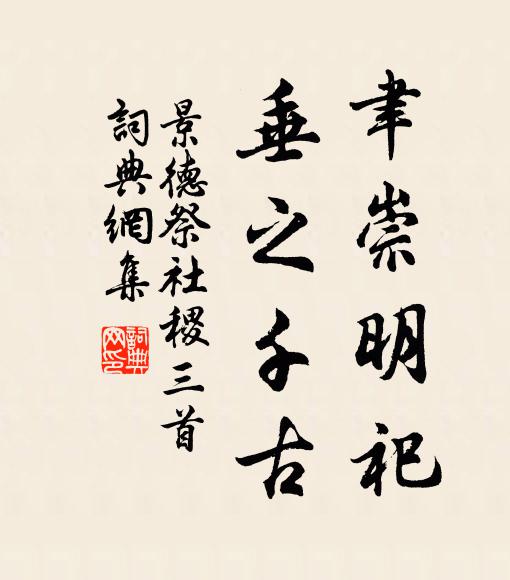 聿崇明祀
垂之千古
景德祭社稷三首
詞典網集
詞典网印